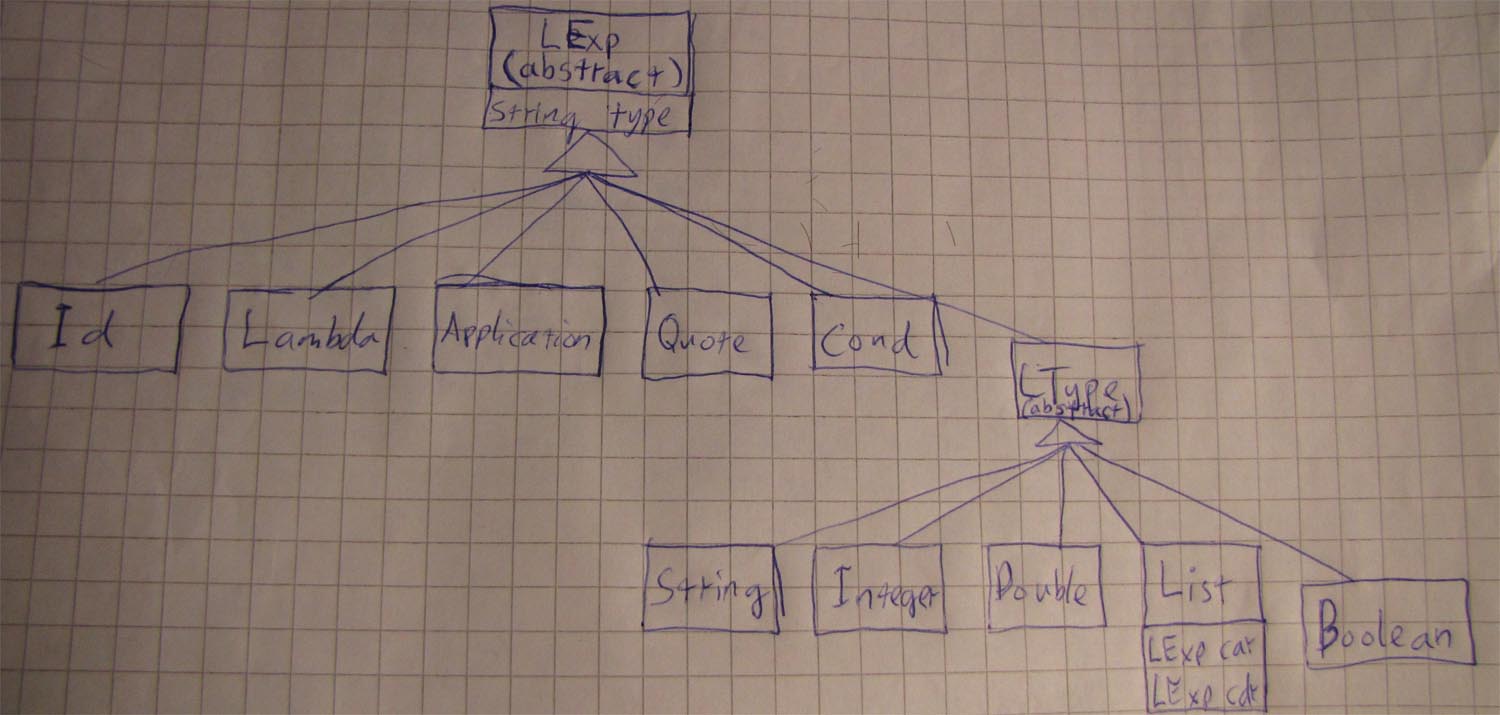 LExp
(abstract)
String type
Id
Lambda
Application
Quote
Cond
LType
(abstract)
String
Integer
Double
List
LExp car
LExp cdr
Boolean